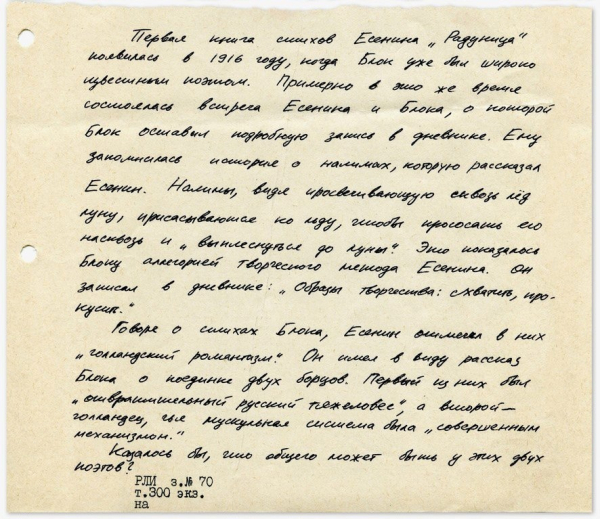 Первая книга стихов Есенина „Радуница"
появилась в 1916 году, когда Блок уже был широко
известным поэтом. Примерно в это же время
состоялась встреча Есенина и Блока, о которой
Блок оставил подробную запись в дневнике. Ему
запомнилась история о налимах, которую рассказал
Есенин. Налимы, видя просвечивающую сквозь лёд
луну, присасываются ко льду, чтобы прососать его
насквозь и „выплеснуться до луны". Это показалось
Блоку аллегорией творческого метода Есенина. Он
записал в дневнике: „Образы творчества: схватить, про-
кусить."
Говоря о стихах Блока, Есенин отмечал в них
„голландский романтизм". Он имел в виду рассказ
Блока о поединке двух борцов. Первый из них был
„отвратительный русский тяжеловес", а второй —
голландец, чья мускульная система была „совершенным
механизмом."
Казалось бы, что общего может быть у этих двух
поэтов?
РЛИ з.№ 70
т.300 экз.
на